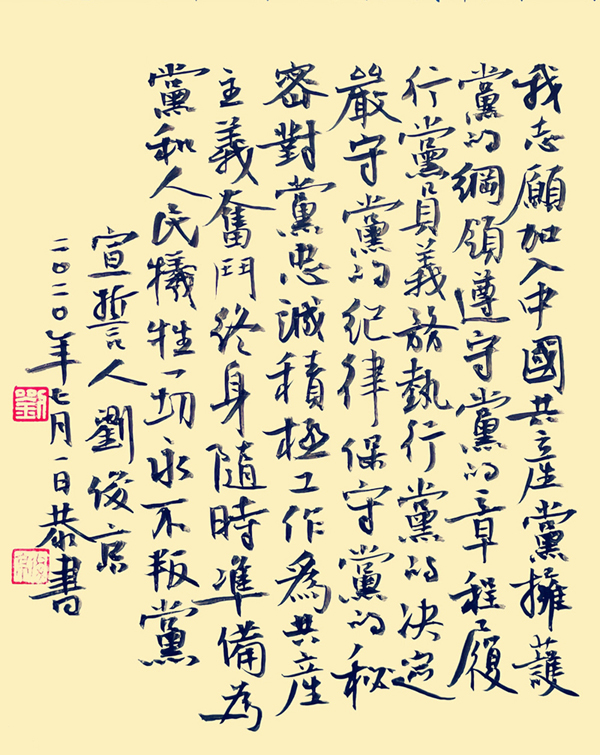 我志願加入中國共産黨擁護
黨的綱領遵守黨的章程履
行黨員義務執行黨的决定
嚴守黨的紀律保守黨的秘
密對黨忠誠積極工作爲共産
主義奮鬥終身隨時準備為
黨和人民犧牲一切永不叛黨
宣誓人劉俊京
二〇二〇年七月一日恭書
劉